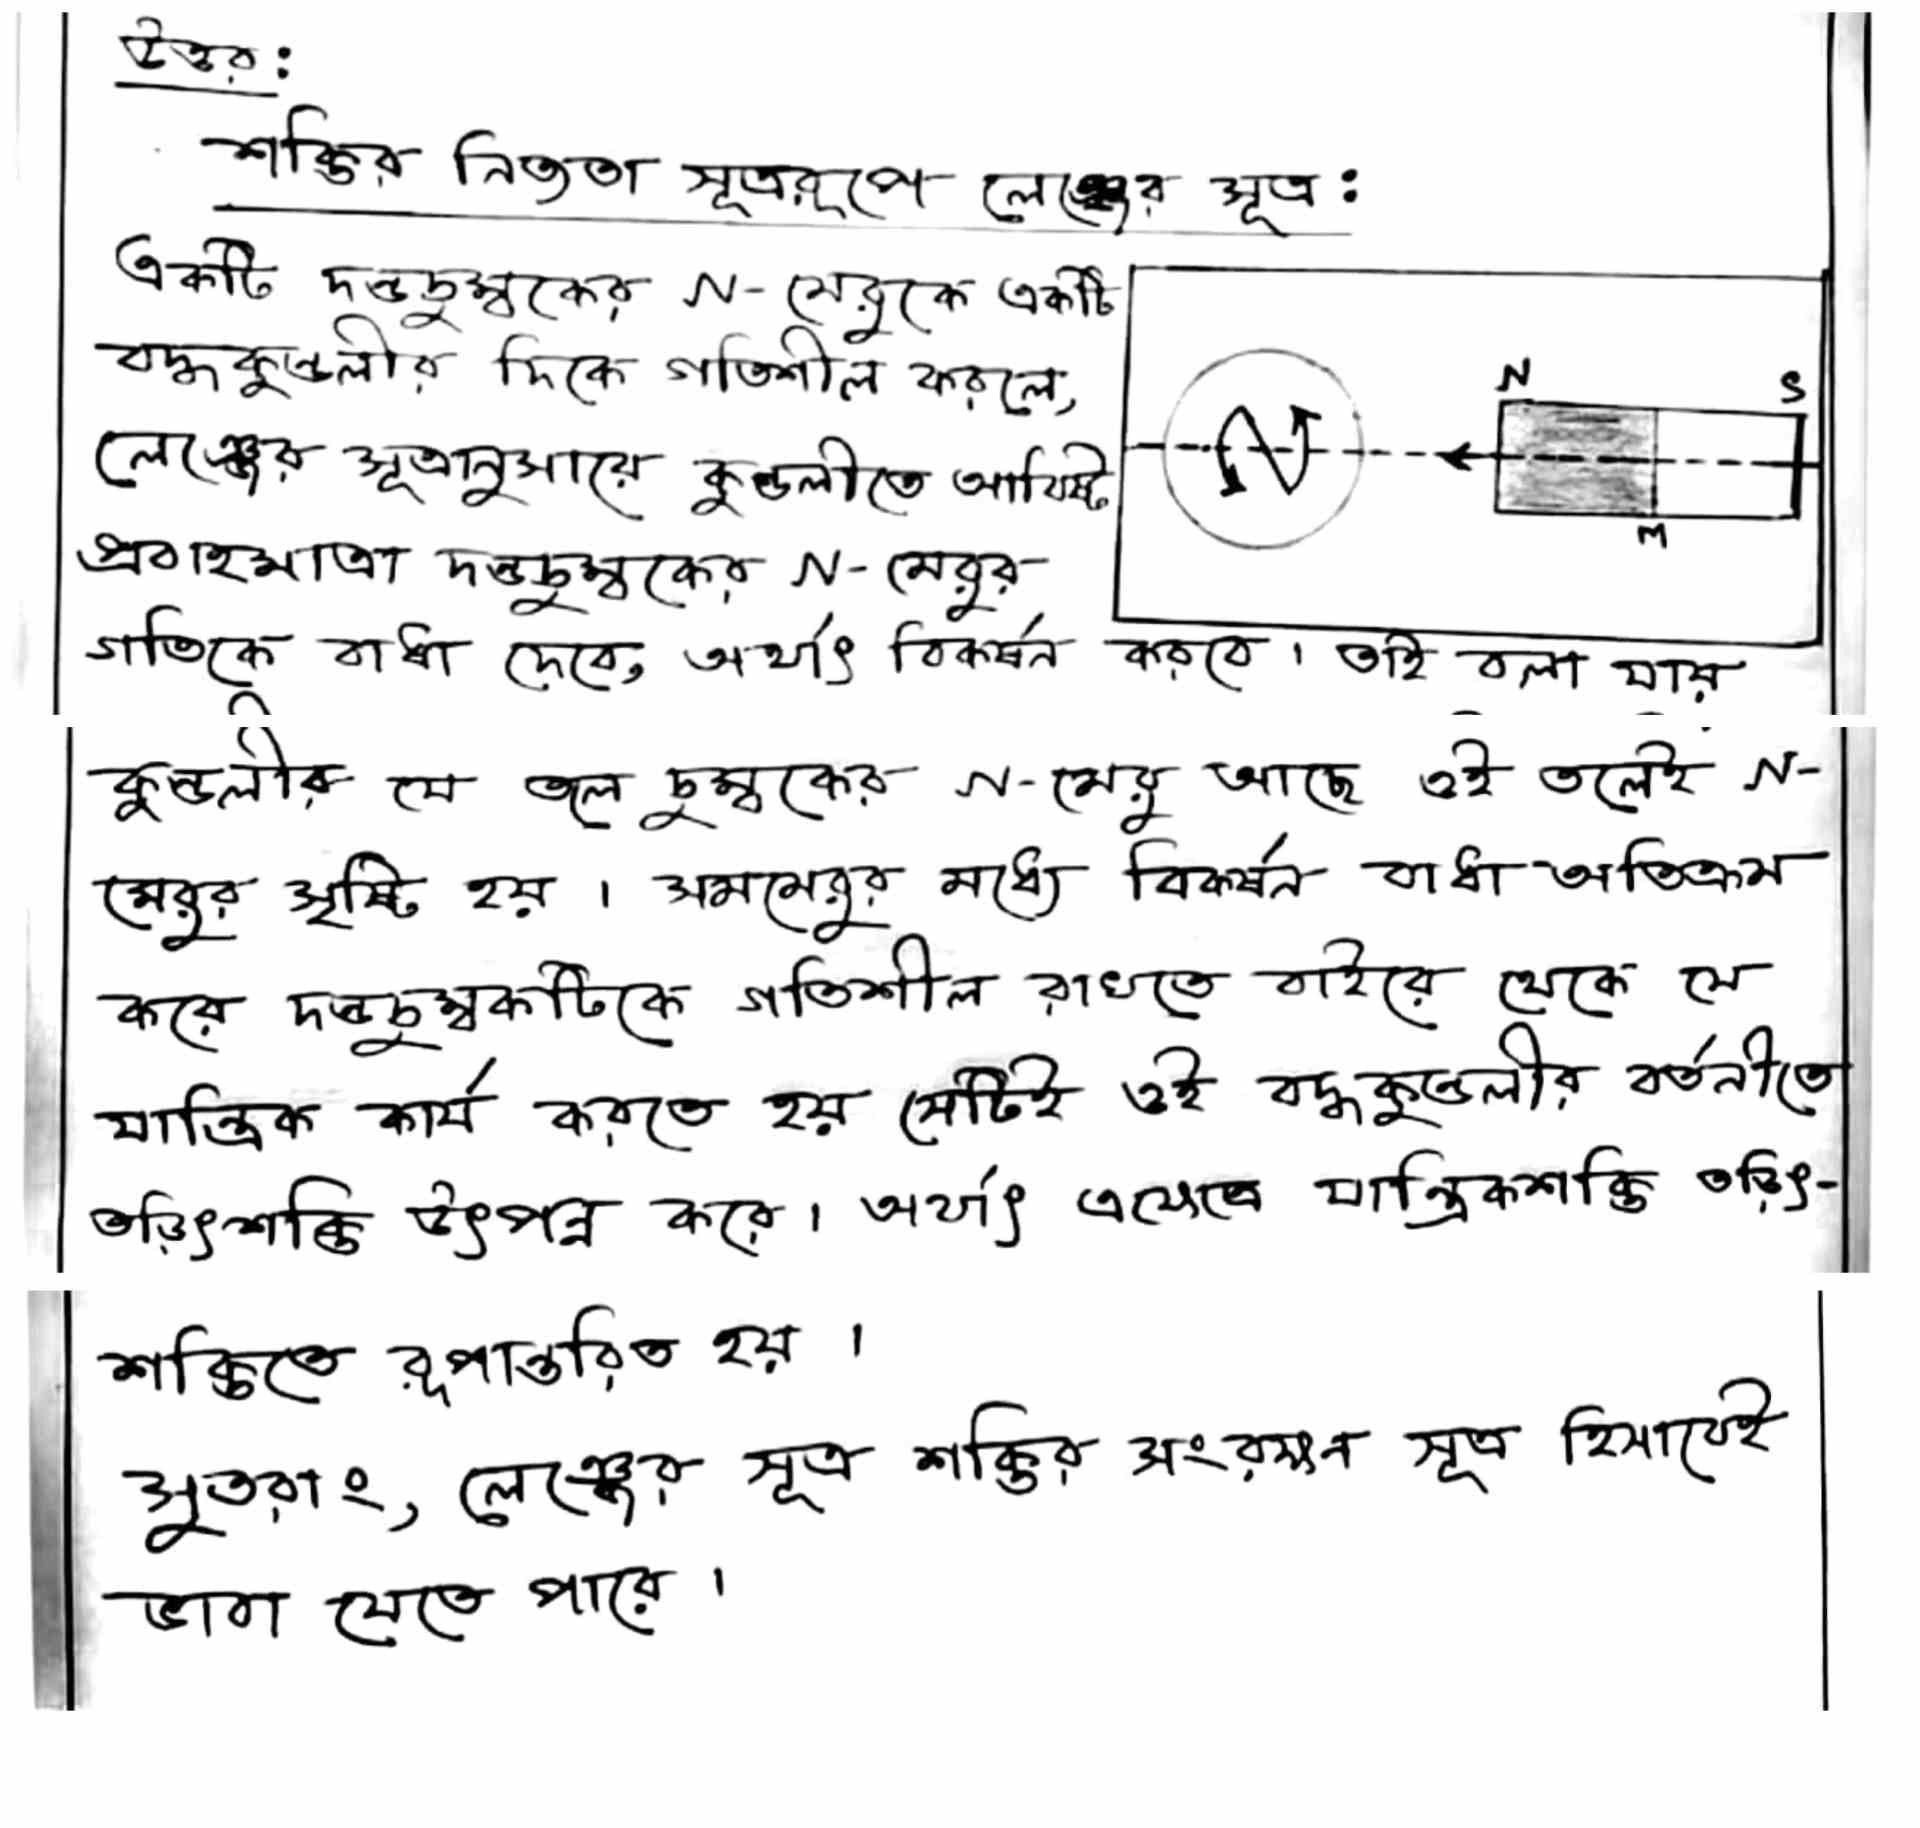 উত্তর:
শক্তির নিত্যতা সূত্ররূপে লেঞ্জের সূত্র:
একটি দন্ডচুম্বকের N-মেরুকে একটি
বদ্ধকুন্ডলীর দিকে গতিশীল করলে,
লেঞ্জের সূত্রানুসারে কুন্ডলীতে আবিষ্ট
প্রবাহমাত্রা দন্ডচুম্বকের N-মেরুর
গতিকে বাধা দেবে, অর্থাৎ বিকর্ষন করবে। তাই বলা যায়
N
S
N
M
কুন্ডলীর যে তলে চুম্বকের N-মেরু আছে ওই তলেই N-
মেরুর সৃষ্টি হয়। সমমেরুর মধ্যে বিকর্ষন বাধা অতিক্রম
করে দন্ডচুম্বকটিকে গতিশীল রাখতে বাইরে থেকে যে
যান্ত্রিক কার্য করতে হয় সেটিই ওই বদ্ধকুন্ডলীর বর্তনীতে
তড়িৎশক্তি উৎপন্ন করে। অর্থাৎ এক্ষেত্রে যান্ত্রিকশক্তি তড়িৎ-
শক্তিতে রূপান্তরিত হয়।
সুতরাং, লেঞ্জের সূত্র শক্তির সংরক্ষন সূত্র হিসাবেই
ভাবা যেতে পারে।